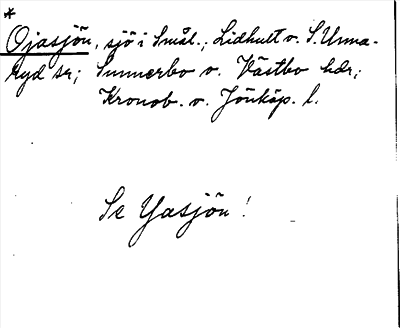 *
Ojasjön, sjö i Smål.; Lidhult o. S. Unna-
ryd sr; Sunnerbo o. Västbo hdr;
Kronob. o. Jönköp. l.
Se Yasjön!